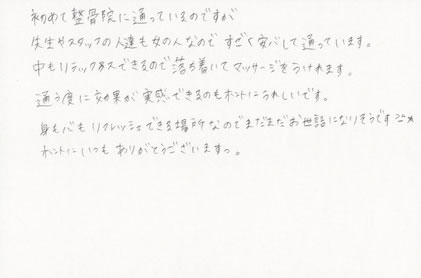 初めて整骨院に通っているのですが
先生やスタッフの人達も女の人なので すごく安心して通っています。
中もリラックスできるので落ち着いてマッサージをうけれます。
通う度に効果が実感できるのもホントにうれしいです。
身も心もリフレッシュできる場所なのでまだまだお世話になりそうです
ホントにいつもありがとうございますっ。